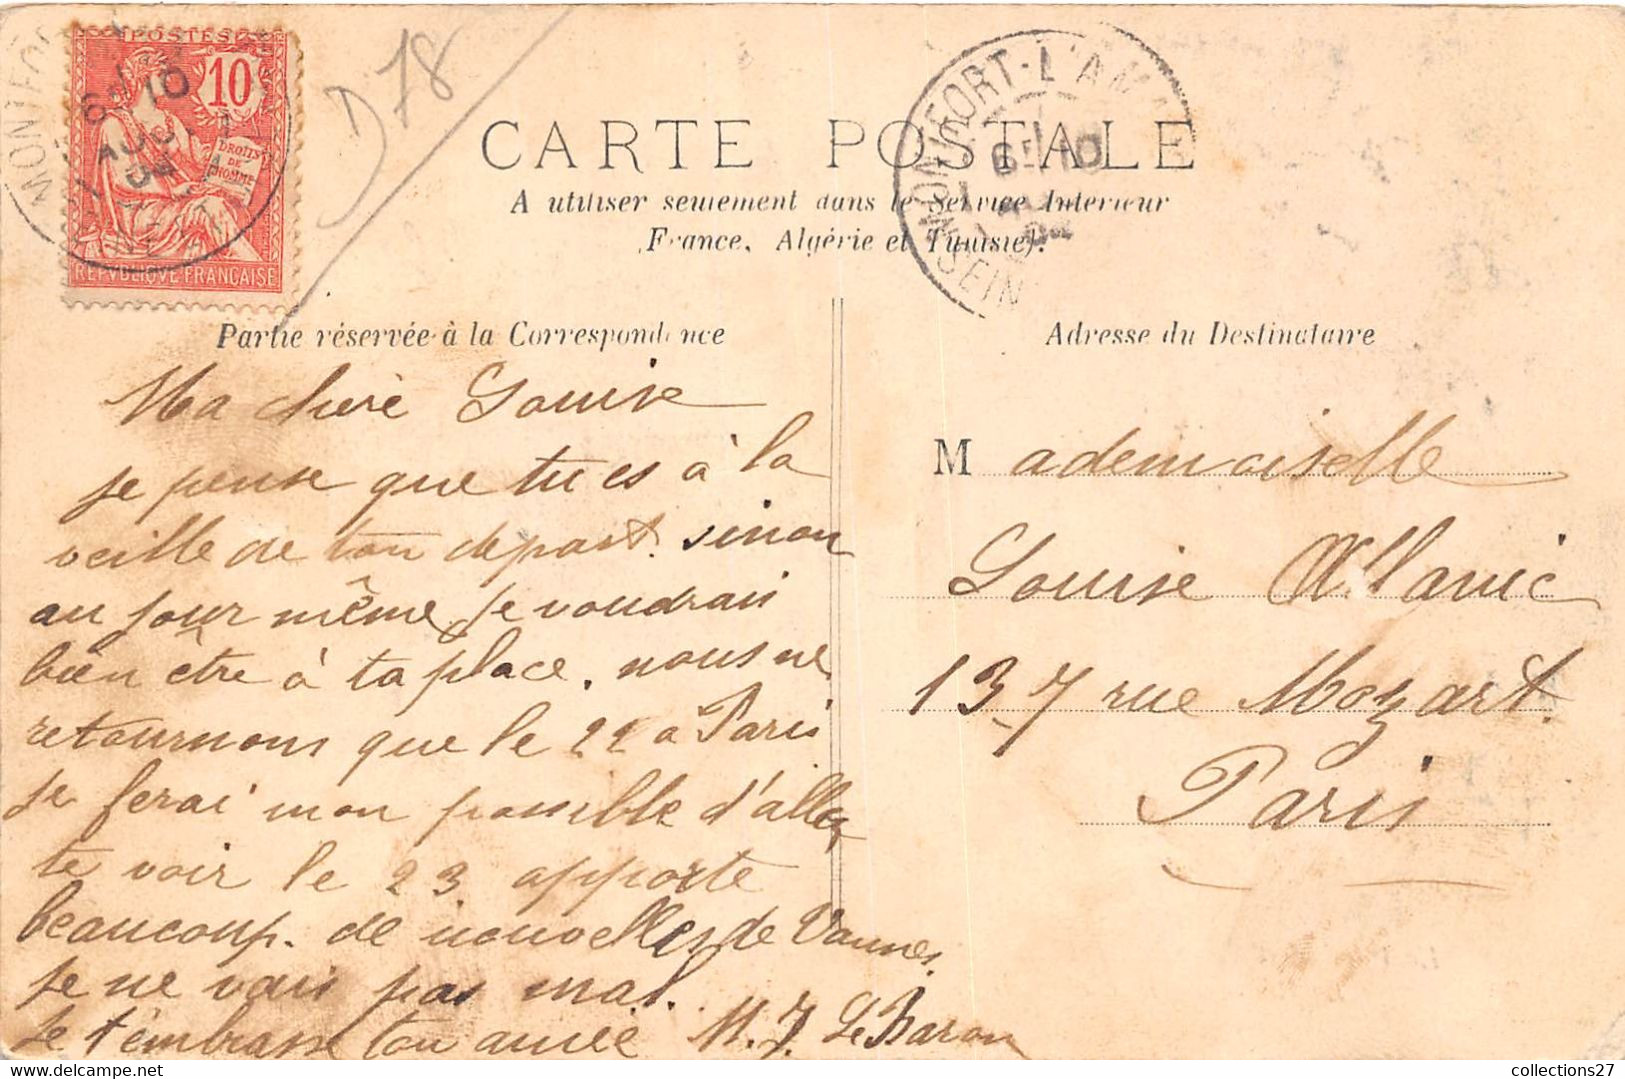 POSTES
10
DROITS
DE
L'HOMME
REPVBLIQVE FRANÇAISE
6E 10
AOUT
04
D 78
MONTFORT-L'AMA
6E 10
SEIN
CARTE POSTALE
A utiliser seulement dans le Service Intérieur
France, Algérie et Tunisie).
Partie réservée à la Correspondance
Adresse du Destinataire
Ma chère Louise
je pense que tu es à la
veille de ton depart. sinon
au jour même, je voudrais
bien être à ta place. nous ne
retournons que le 22 a Paris
je ferai mon possible d'aller
te voir le 23 apporte
beaucoup. de nouvelles de Vannes.
je ne vais pas mal.
Je t'embrasse ton amie M. J. Le Baron
Mademoiselle
Louise Allanic
137 rue Mozart.
Paris
collections27